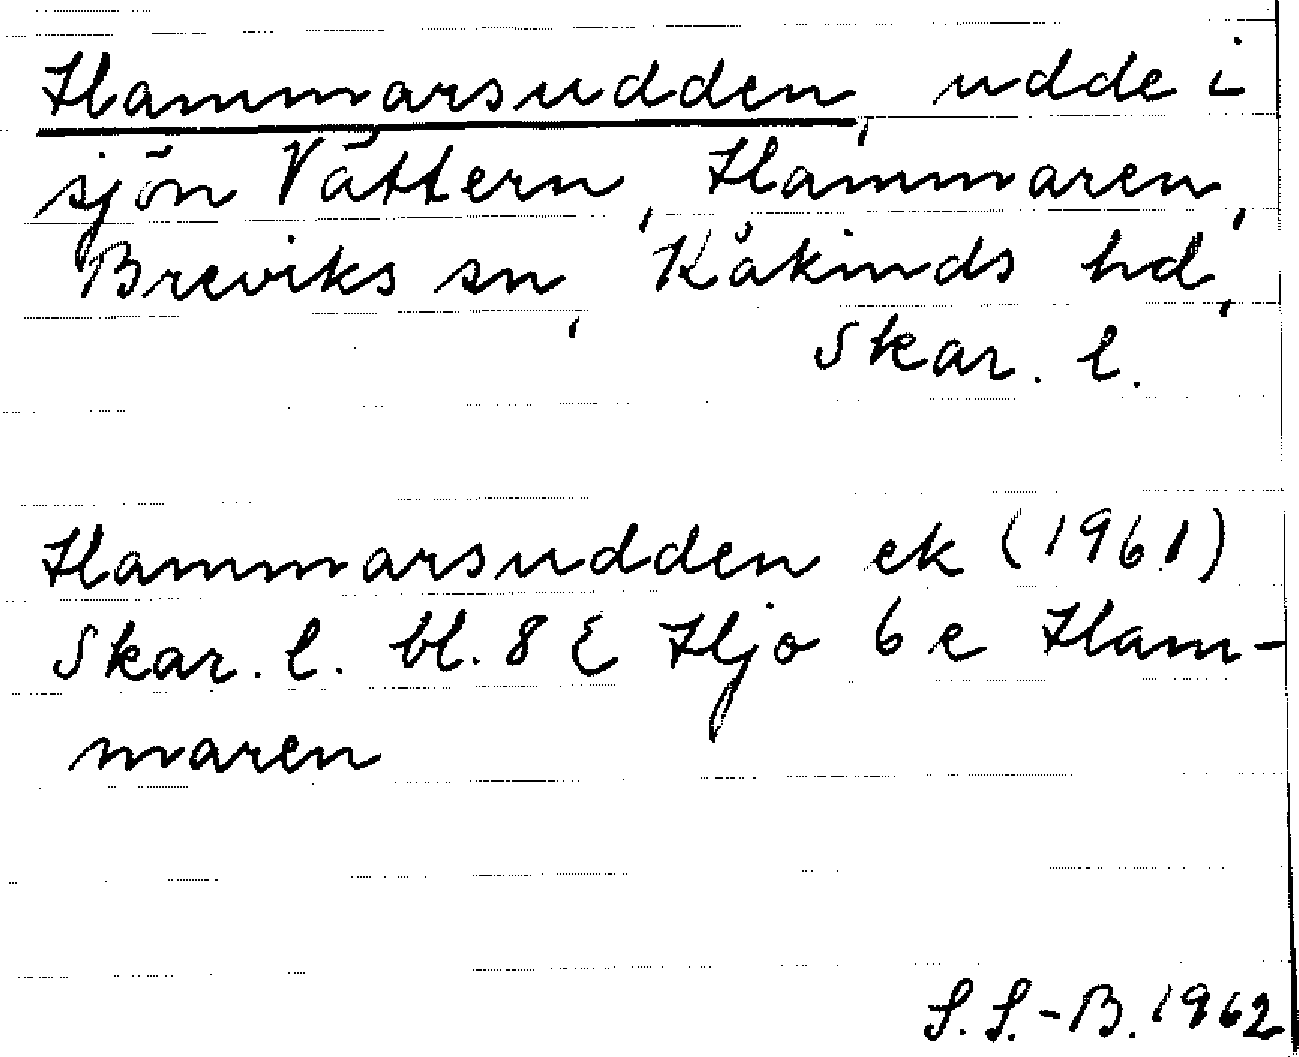 Hammarsudden, udde i
sjön Vättern, Hammaren,
Breviks sn, Kåkinds hd,
Skar. l.
Hammarsudden ek (1961)
Skar. l. bl. 8 E Hjo 6 e Ham-
maren
S. S.-B. 1962